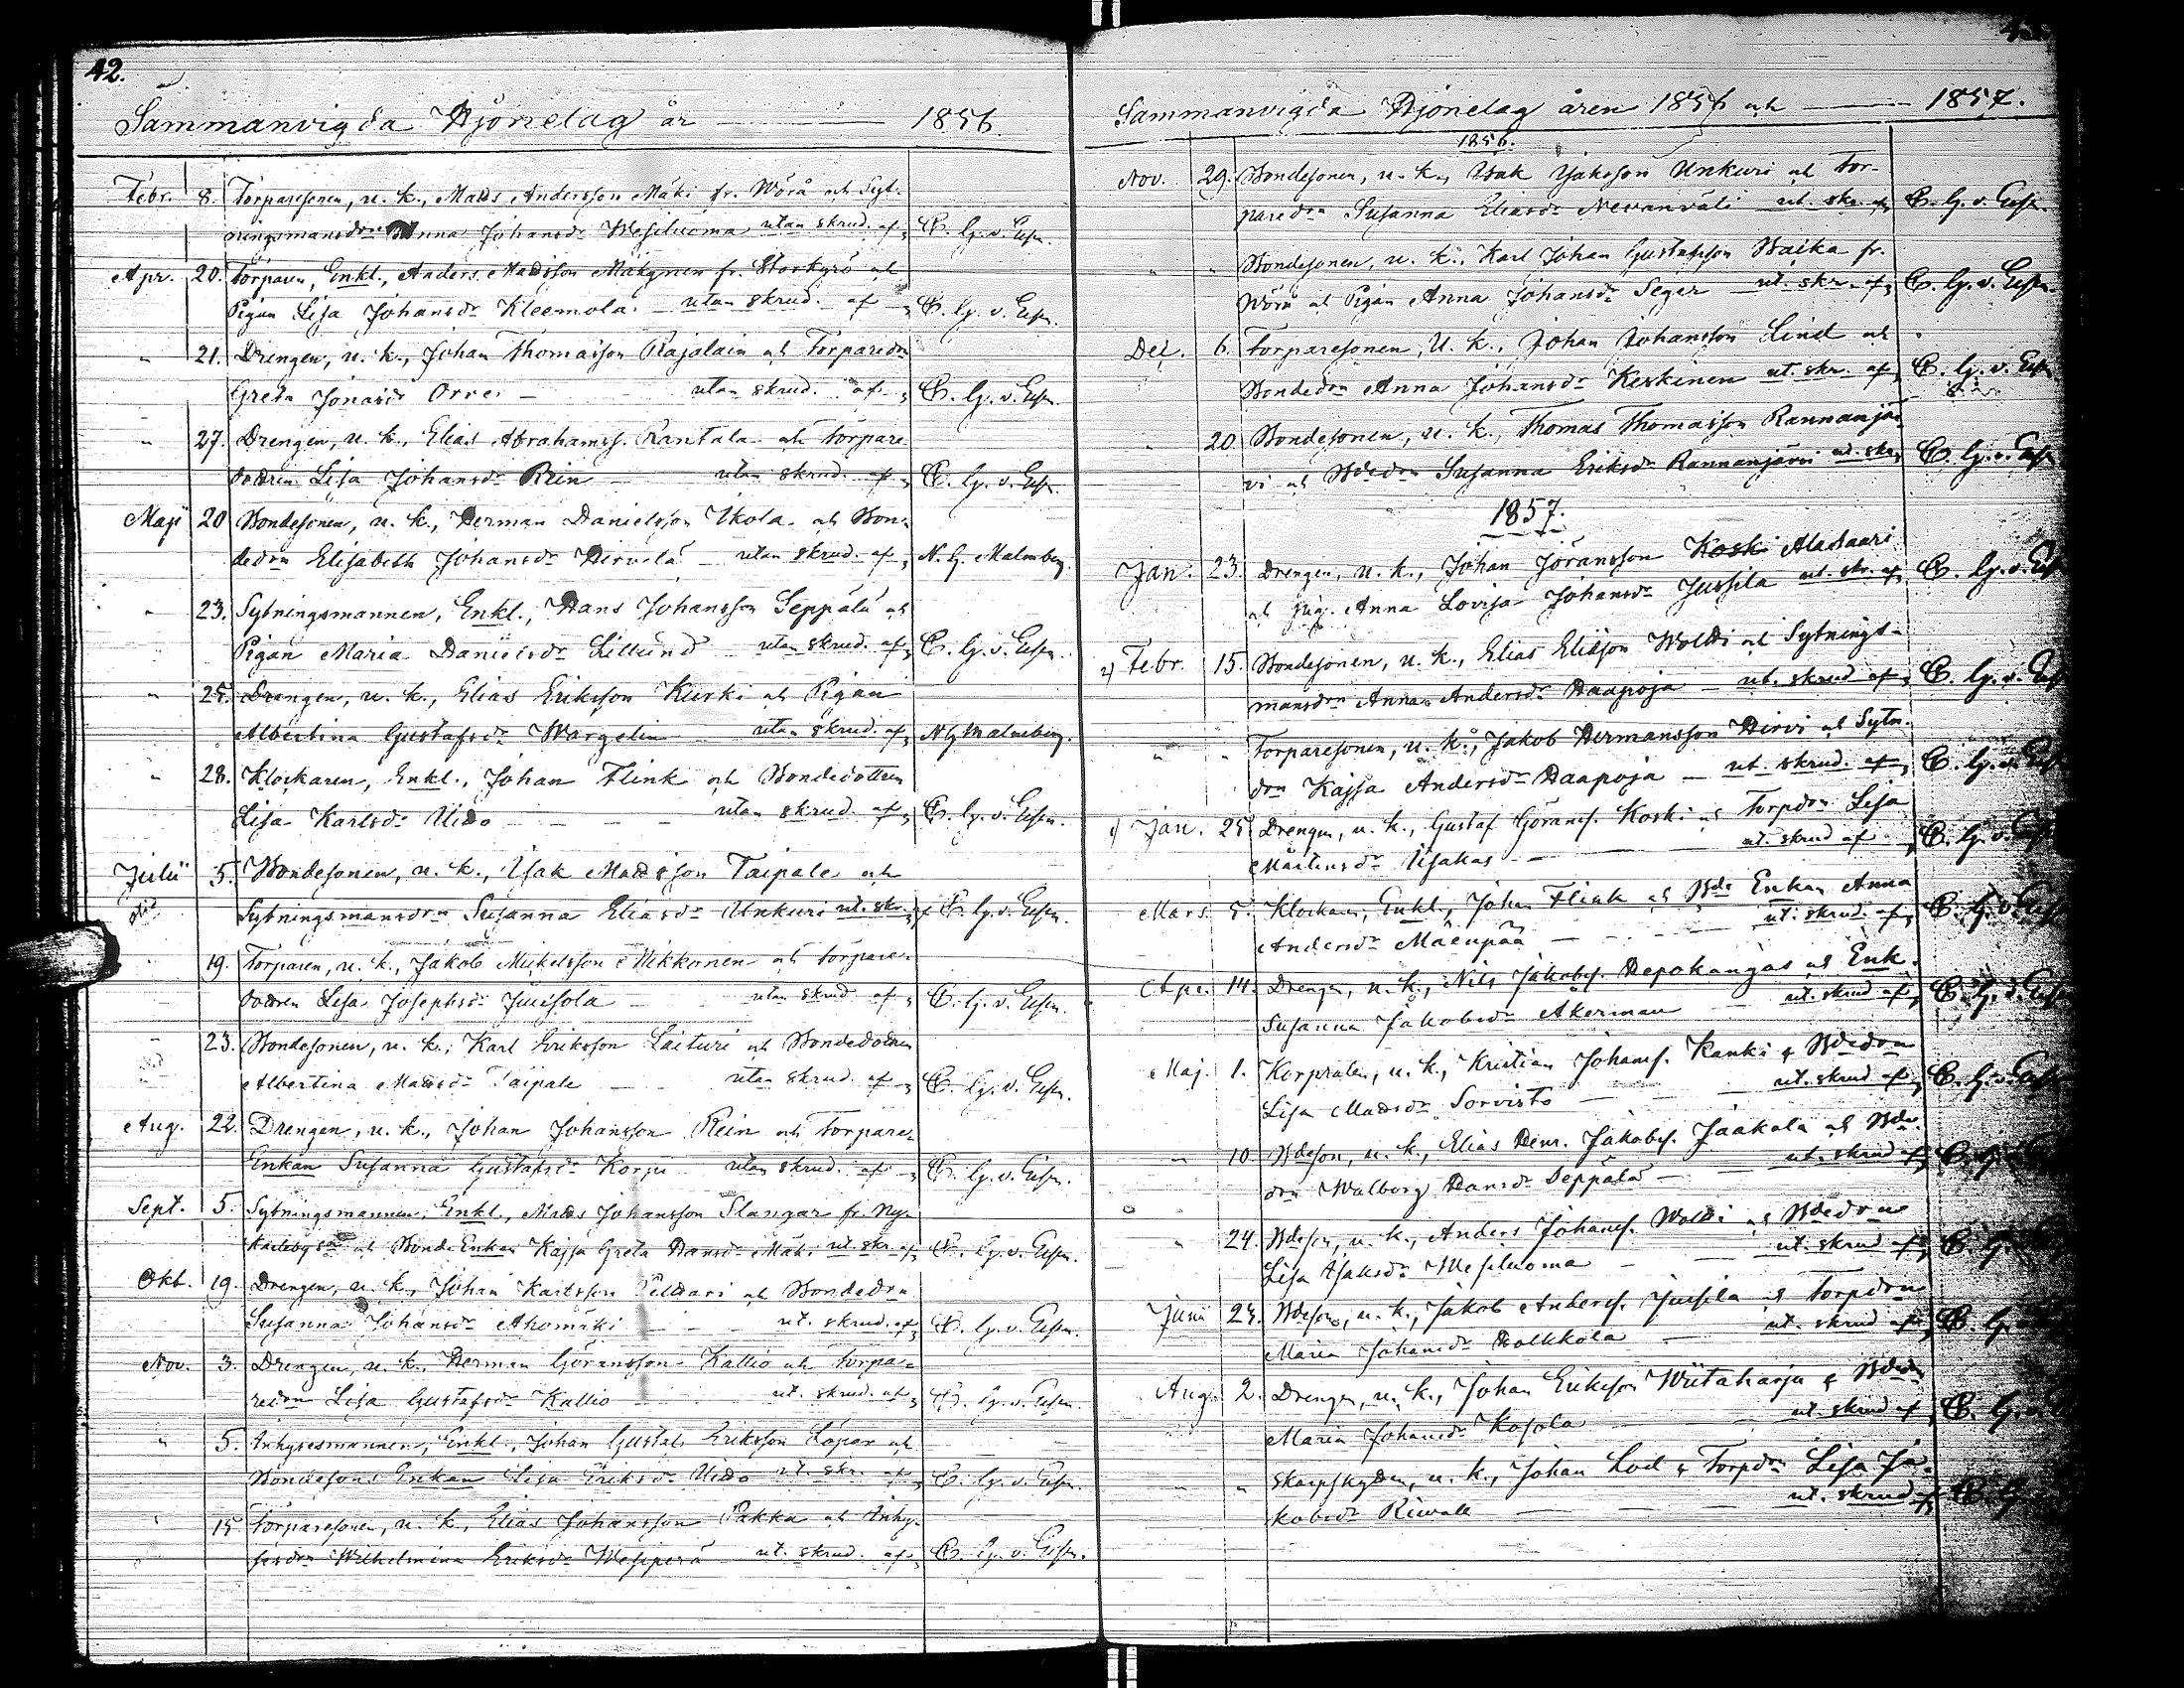 42.
Sammanvigda Hjonelag år 1856.
Febr. 8. Torparesonen, u. k., Matts Andersson Mäki fr. Wörå och Syt-
ningsmansdrn Anna Johansdr Wesiluoma utan skrud. af C. G. v. Essen.
Apr. 20. Torparen, Enkl., Anders Mattsson Mäkynen fr. Storkyro och
Pigan Lisa Johansdr Kleemola utan skrud. af C. G. v. Essen.
" 21. Drengen, u. k., Johan Thomasson Rajalain och Torparedrn
Greta Jonasdr Orre utan skrud. af C. G. v. Essen.
" 27. Drengen, u. k., Elias Abrahamss. Rantala och Torpare
dottren Lisa Johansdr Rein utan skrud. af C. G. v. Essen.
Maji 20 Bondesonen, u. k., Herman Danielsson Ikola och Bon-
dedrn Elisabeth Johansdr Hirvelä utan skrud. af N. G. Malmberg.
" 23. Sytningsmannen, Enkl., Hans Johansson Seppälä och
Pigan Maria Danielsdr Lillund utan skrud. af C. G. v. Essen.
" 25. Drengen, u. k., Elias Eriksson Kurki och Pigan
Albertina Gustafsdr Wargelin utan skrud. af N G Malmberg.
" 28. Klockaren, Enkl., Johan Flink och Bondedottren
Lisa Karlsdr Uitto utan skrud. af C. G. v. Essen.
Julii 5. Bondesonen, u. k., Isak Mattsson Taipale och
Sytningsmansdrn Susanna Eliasdr Unkuri ut. skr. af C. G. v. Essen.
19. Torparen, u. k., Jakob Mickelsson Mikkonen och torpare-
dottren Lisa Josephsdr Juusola utan skrud af C. G. v. Essen.
23. Bondesonen, u. k., Karl Eriksson Laituri och Bondedottren
Albertina Mattsdr Taipale utan skrud. af C. G. v. Essen.
Aug. 22. Drengen, u. k., Johan Johansson Rein och Torpare-
Enkan Susanna Gustafsdr Korpi utan skrud. af C. G. v. Essen.
Sept. 5. Sytningsmannen, Enkl., Matts Johansson Slangar fr. Ny-
karleby och Bonde Enkan Kajsa Greta Hansdr Mäki ut. skr. af C. G. v. Essen.
Okt. 19. Drengen, u. k., Johan Karlsson och Bondedrn
Susanna Johansdr Ahomäki ut. skrud. af C. G. v. Essen.
Nov. 3. Drengen, u. k., Herman Göransson Kallio och Torpa-
redrn Lisa Gustafsdr Kallio ut. skrud. af C. G. v. Essen.
" 5. Inhysesmannen, Enkl., Johan Gustaf Eriksson Lapar och
Bondesons Enkan Lisa Eriksdr Uitto ut. skr. af C. G. v. Essen.
" 15 Torparesonen, u. k., Elias Johansson Pakka och Inhy-
sesdrn Wilhelmina Eriksdr Wesiperä ut. skrud. af C. G. v. Essen.
Sammanvigda Hjonelag åren 1856 och 1857.
1856.
Nov. 29. Bondesonen, u. k., Isak Jakosson Unkuri och Tor-
paredrn Susanna Eliasdr Nevanväli ut. skr. af C. G. v. Essen.
" " Bondesonen, u. k., Karl Johan Gustafsson Waika fr.
Wörå och Pigan Anna Johansdr Seger ut. skr. af C. G. v. Essen.
Dec. 6. Torparesonen, U. k., Johan Johansson Lind och
Bondedrn Anna Johansdr Keskinen ut. skr. af C. G. v. Essen
" 20 Bondesonen, u. k., Thomas Thomasson Rannanjär-
vi och Bdedrn Susanna Eriksdr Rannanjärvi ut. skr. C. G. v. Essen
1857.
Jan. 23. Drengen, u. k., Johan Jöransson Koski Alasaari
och Pig. Anna Lovisa Johansdr Jussila ut. skr. af C. G. v. Es
2) Febr. 15. Bondesonen, u. k., Elias Eliasson Woldi och Sytnings-
mansdrn Anna Andersdr Haapoja ut. skrud af C. G. v. Es
" " Torparesonen, u. k., Jakob Hermansson Hirvi och Sytn.
drn Kajsa Andersdr Haapoja ut. skrud. af C. G. v. Ess
1) Jan. 25 Drengen, u. k., Gustaf Göranss. Koski och Torpdrn Lisa
Mårtensdr Usakas ut. skrud af C. G. v. Es
Mars. 5. Klockaren, Enkl., Johan Flink och Bde Enkan Anna
Andersdr Mäenpää ut. skrud. af C. G. v. Ess
Apr. 14. Drengen, u. k., Nils Jakobss. Hepokangas och Enk.
Susanna Jakobsdr Åkerman ut. skrud af C. G. v. Ess
Maj. 1. Korpralen, u. k., Kristian Johanss. Kanki & Bdedrn
Lisa Mattsdr Sorvisto ut. skrud af C. G. v. Ess
" 10. Bdeson, u. k., Elias Henr. Jakobss. Jaakola och Bde
drn Walborg Hansdr Seppälä ut. skrud af C. G.
" 24. Bdeson, u. k., Anders Johanss. Woldi och Bdedrn
Lisa Isaksdr Wesiluoma ut. skrud af C. G.
Juni 25. Bdeson, u. k., Jakob Anderss. Jussila & Torpdrn
Maria Johansdr Holkkola ut. skrud af C. G.
Aug. 2. Drengen, u. k., Johan Eriksson Wiitaharju & Bdedrn
Maria Johansdr Kojola ut. skrud af C. G.
" " Skarpskytten, u. k., Johan Lod & Torpdrn Lisa Ja-
kobsdr Riwall ut. skrud af C. G.